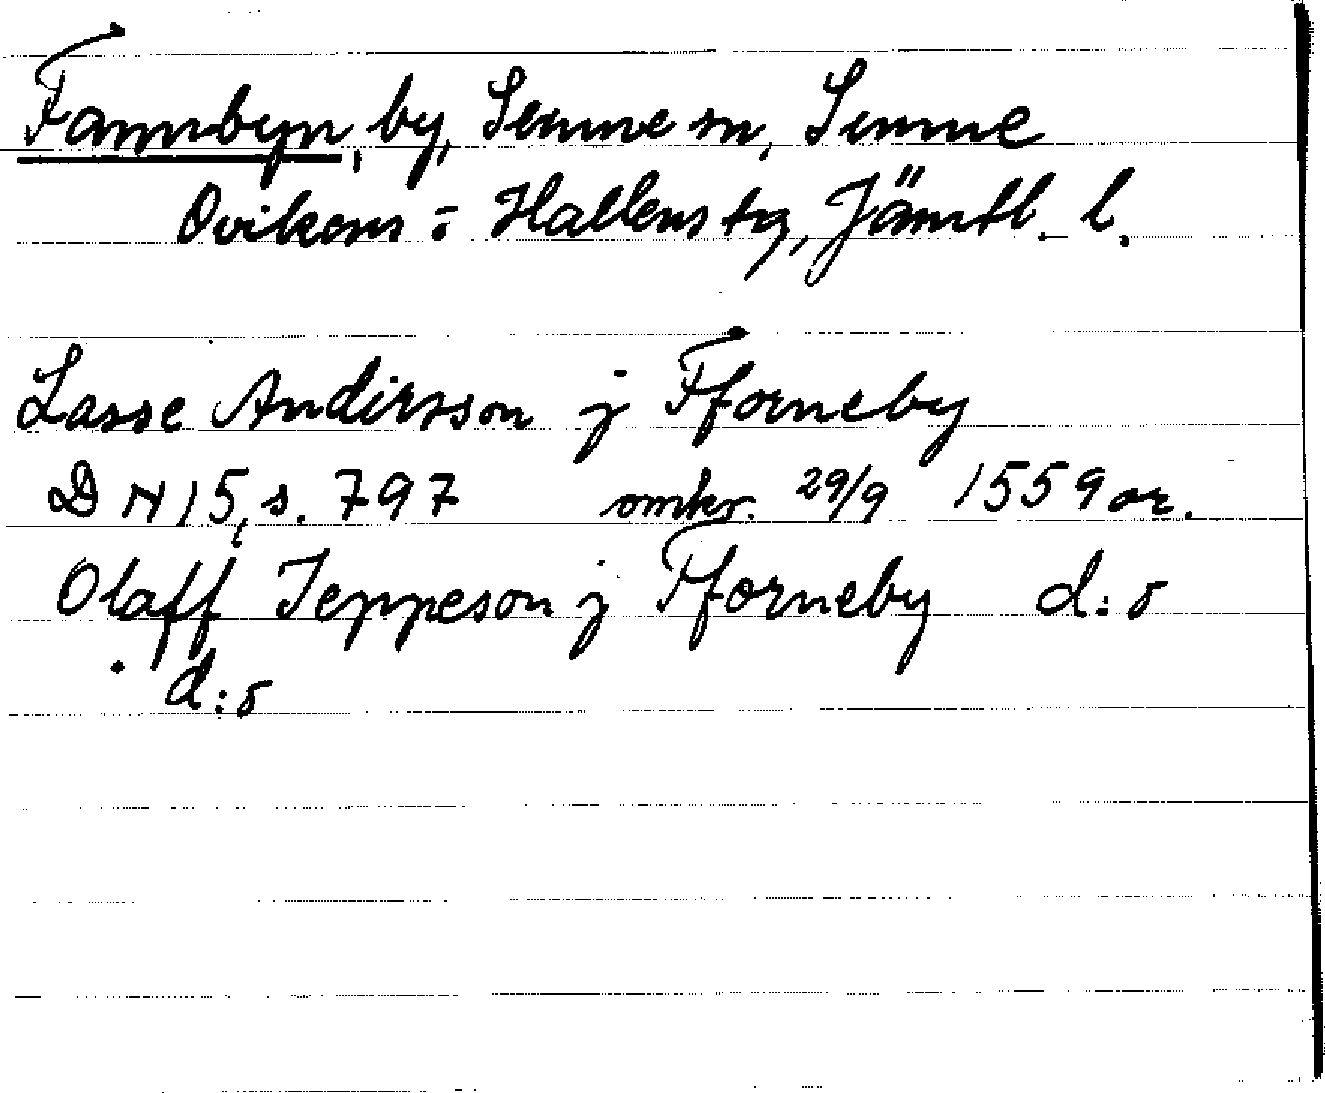 Fannbyn, by, Sunne sn, Sunne
Ovikens o Hallens tg, Jämtl. l.
Lasse Andersson j Fforneby
DN 15, s. 797 omkr. 29/9 1559 or.
Olaff Jeppeson j Fforneby d:o
d:o